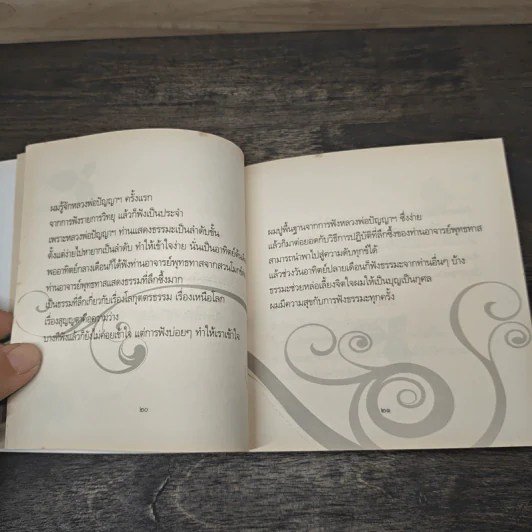 ผมรู้จักหลวงพ่อปัญญาฯ ครั้งแรก
จากการฟังรายการวิทยุ แล้วก็ฟังเป็นประจำ
เพราะหลวงพ่อปัญญาฯ ท่านแสดงธรรมะเป็นลำดับชั้น
ตั้งแต่ง่ายไปหายากเป็นลำดับ ทำให้เข้าใจง่าย นั่นเป็นอาทิตย์ต้นเดือน
พออาทิตย์กลางเดือนก็ได้ฟังท่านอาจารย์พุทธทาสจากสวนโมกข์
ท่านอาจารย์พุทธทาสแสดงธรรมที่ลึกซึ้งมาก
เป็นธรรมที่ลึกเกี่ยวกับเรื่องโลกุตตรธรรม เรื่องเหนือโลก
เรื่องสุญญตาคือความว่าง
บางทีฟังแล้วก็ยังไม่ค่อยเข้าใจ แต่การฟังบ่อยๆ ทำให้เราเข้าใจ
๒๐
ผมปูพื้นฐานจากการฟังหลวงพ่อปัญญาฯ ซึ่งง่าย
แล้วก็มาต่อยอดกับวิธีการปฏิบัติที่ลึกซึ้งของท่านอาจารย์พุทธทาส
สามารถนำพาไปสู่ความดับทุกข์ได้
แล้วช่วงวันอาทิตย์ปลายเดือนก็ฟังธรรมะจากท่านอื่นๆ บ้าง
ธรรมะช่วยหล่อเลี้ยงจิตใจผมให้เป็นบุญเป็นกุศล
ผมมีความสุขกับการฟังธรรมะทุกครั้ง
๒๑